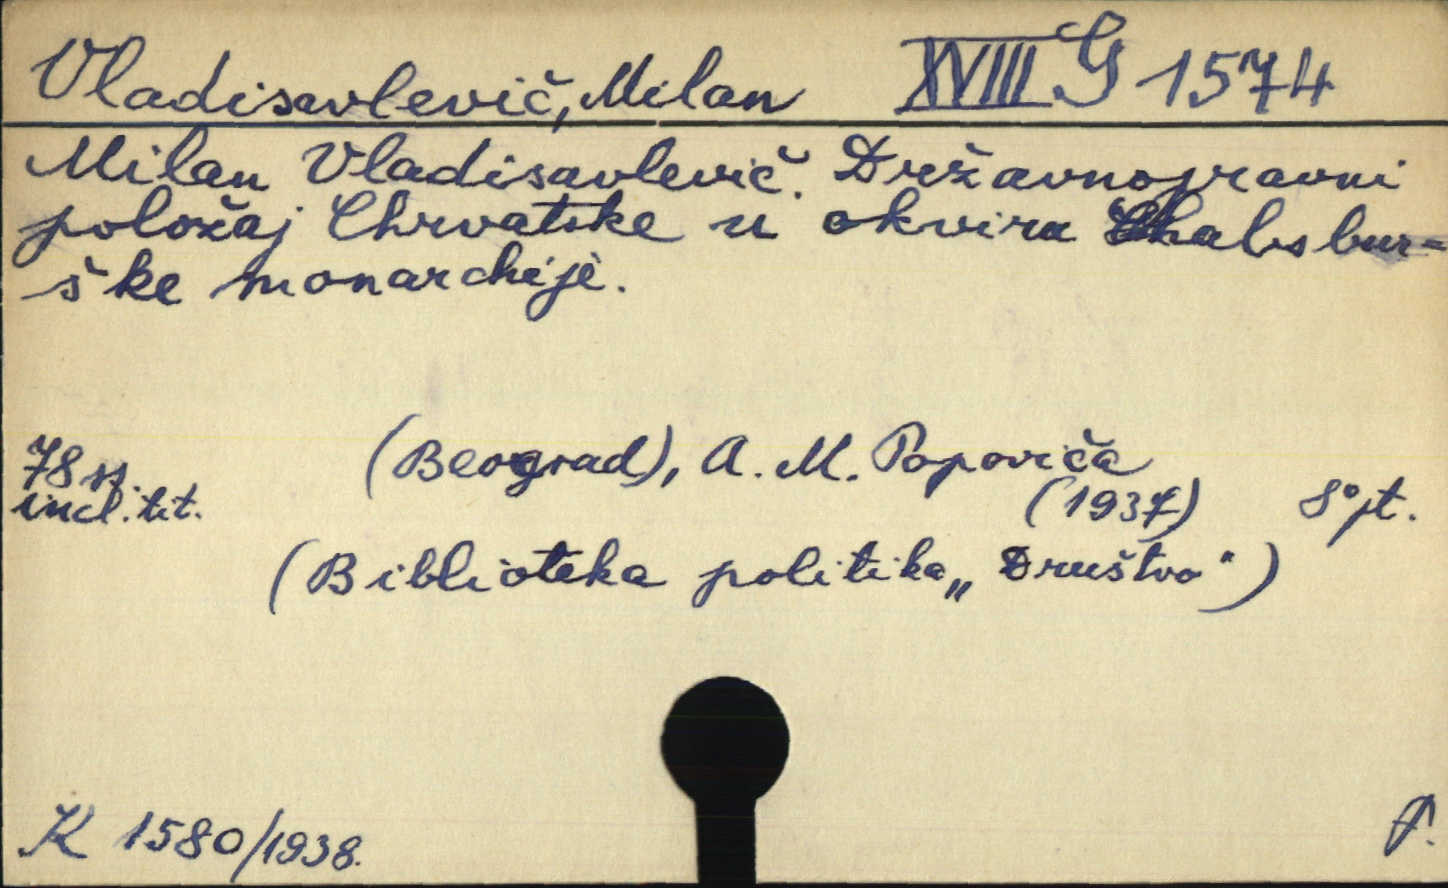 Vladisavlevič, Milan XVIII G 1574
Milan Vladisavlevič. Državnopravni
položaj Chrvatske u okviru Chabsbur=
ške monarchije.
78 ss.
incl. tit.
(Beograd), A. M. Popoviča
(1937) 8° pt.
(Biblioteka politika „Društvo“)
K 1580/1938.
P.